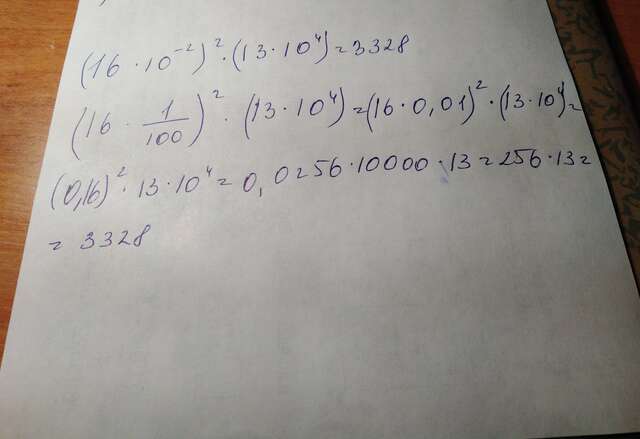 (16 · 10⁻²)² · (13 · 10⁴) = 3328
(16 · 1/100)² · (13 · 10⁴) = (16 · 0,01)² · (13 · 10⁴) =
(0,16)² · 13 · 10⁴ = 0,0256 · 10000 · 13 = 256 · 13 =
= 3328